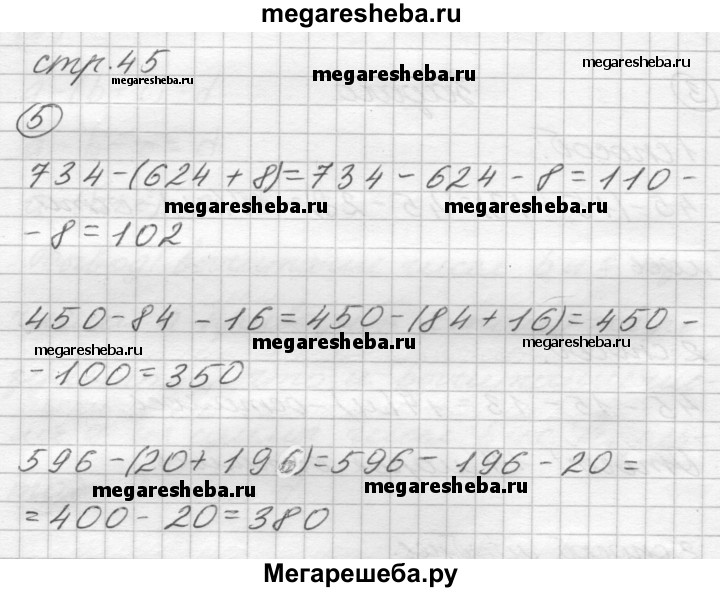 megaresheba.ru
стр. 45
megaresheba.ru
megaresheba.ru
megaresheba.ru
5
734-(624+8)=734-624-8=110-
megaresheba.ru
megaresheba.ru
-8=102
450-84-16=450-(84+16)=450-
megaresheba.ru
megaresheba.ru
megaresheba.ru
-100=350
596-(20+196)=596-196-20=
megaresheba.ru
megaresheba.ru
=400-20=380
Мегарешеба.ру